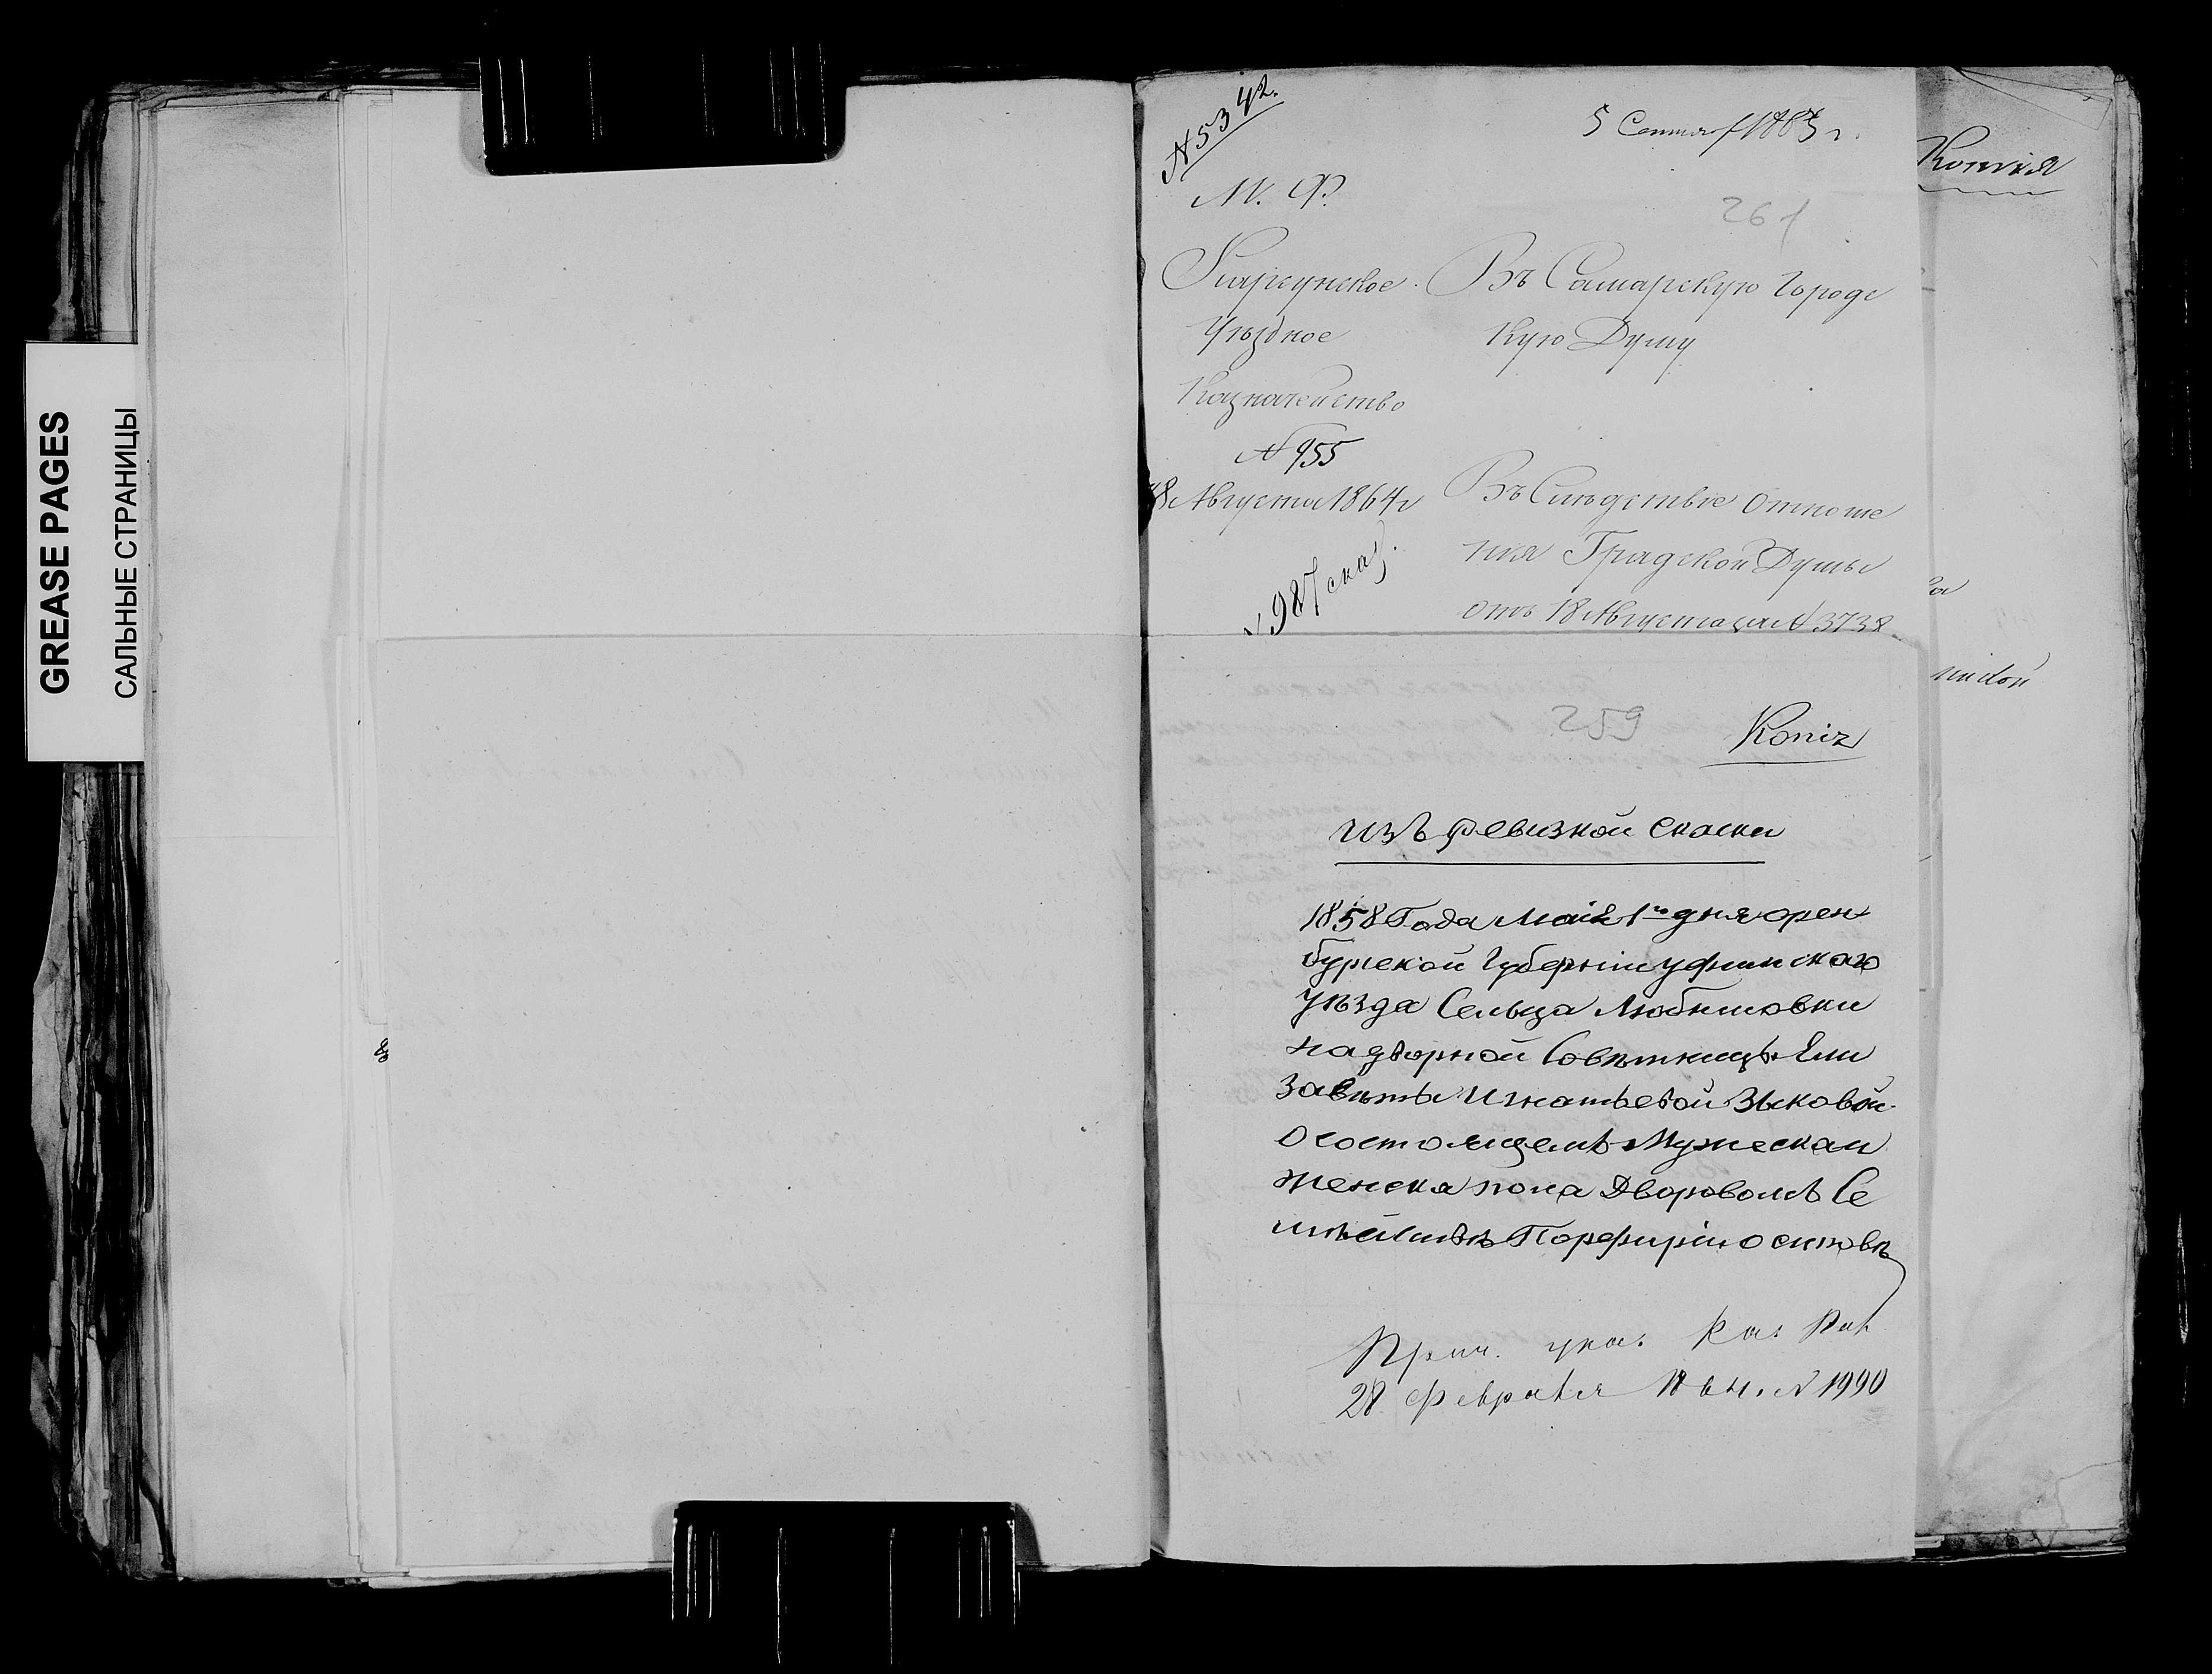 GREASE PAGES
САЛЬНЫЕ СТРАНИЦЫ
№ 5342.
5 Сентяб 1863 г.
М. Ф.
261
Карсунское
Уѣздное
Казначейство
№ 955
28 Августа 1864 г
987 сказ.
Въ Самарскую Городс
кую Думу
Въ Слѣдствіе Отноше
нія Градской Думы
отъ 18 Августа за № 3738
259
Копія
изъ ревизкой скаски
1858 Года Маія 1го дня орен
бурской Губерніи уфимскаго
уѣзда Сельца Любимовки
надворной Совѣтницы Ели
заветы Игнатьевой Зыковой
О состоящемъ Мужеска и
женска пола Дворовомъ Се
мѣйствѣ Порфирія осиповѣ
Прич. ука. Каз. Пал.
28 февраля 1864. № 1990
Копія